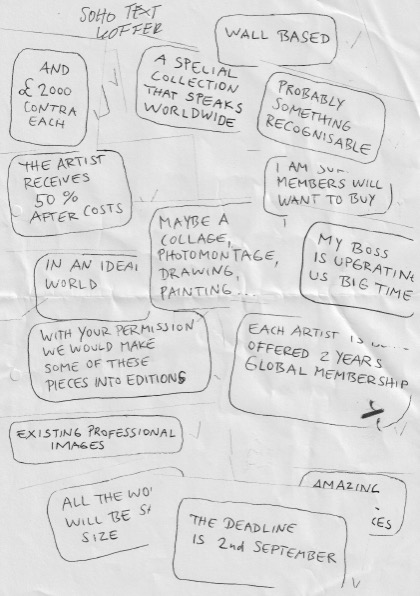 SOHO TEXT
WALL BASED
AND
£2000
CONTRA
EACH
A SPECIAL
COLLECTION
THAT SPEAKS
WORLDWIDE
PROBABLY
SOMETHING
RECOGNISABLE
THE ARTIST
RECEIVES
50 %
AFTER COSTS
I AM
MEMBERS WILL
WANT TO BUY
MAYBE A
COLLAGE,
PHOTOMONTAGE,
DRAWING,
PAINTING...
MY BOSS
IS UPGRATING
US BIG TIME
IN AN IDEAL
WORLD
WITH YOUR PERMISSION
WE WOULD MAKE
SOME OF THESE
PIECES INTO EDITIONS
EACH ARTIST IS
OFFERED 2 YEARS
GLOBAL MEMBERSHIP
EXISTING PROFESSIONAL
IMAGES
ALL THE
WILL BE
SIZE
AMAZING
THE DEADLINE
IS 2nd SEPTEMBER